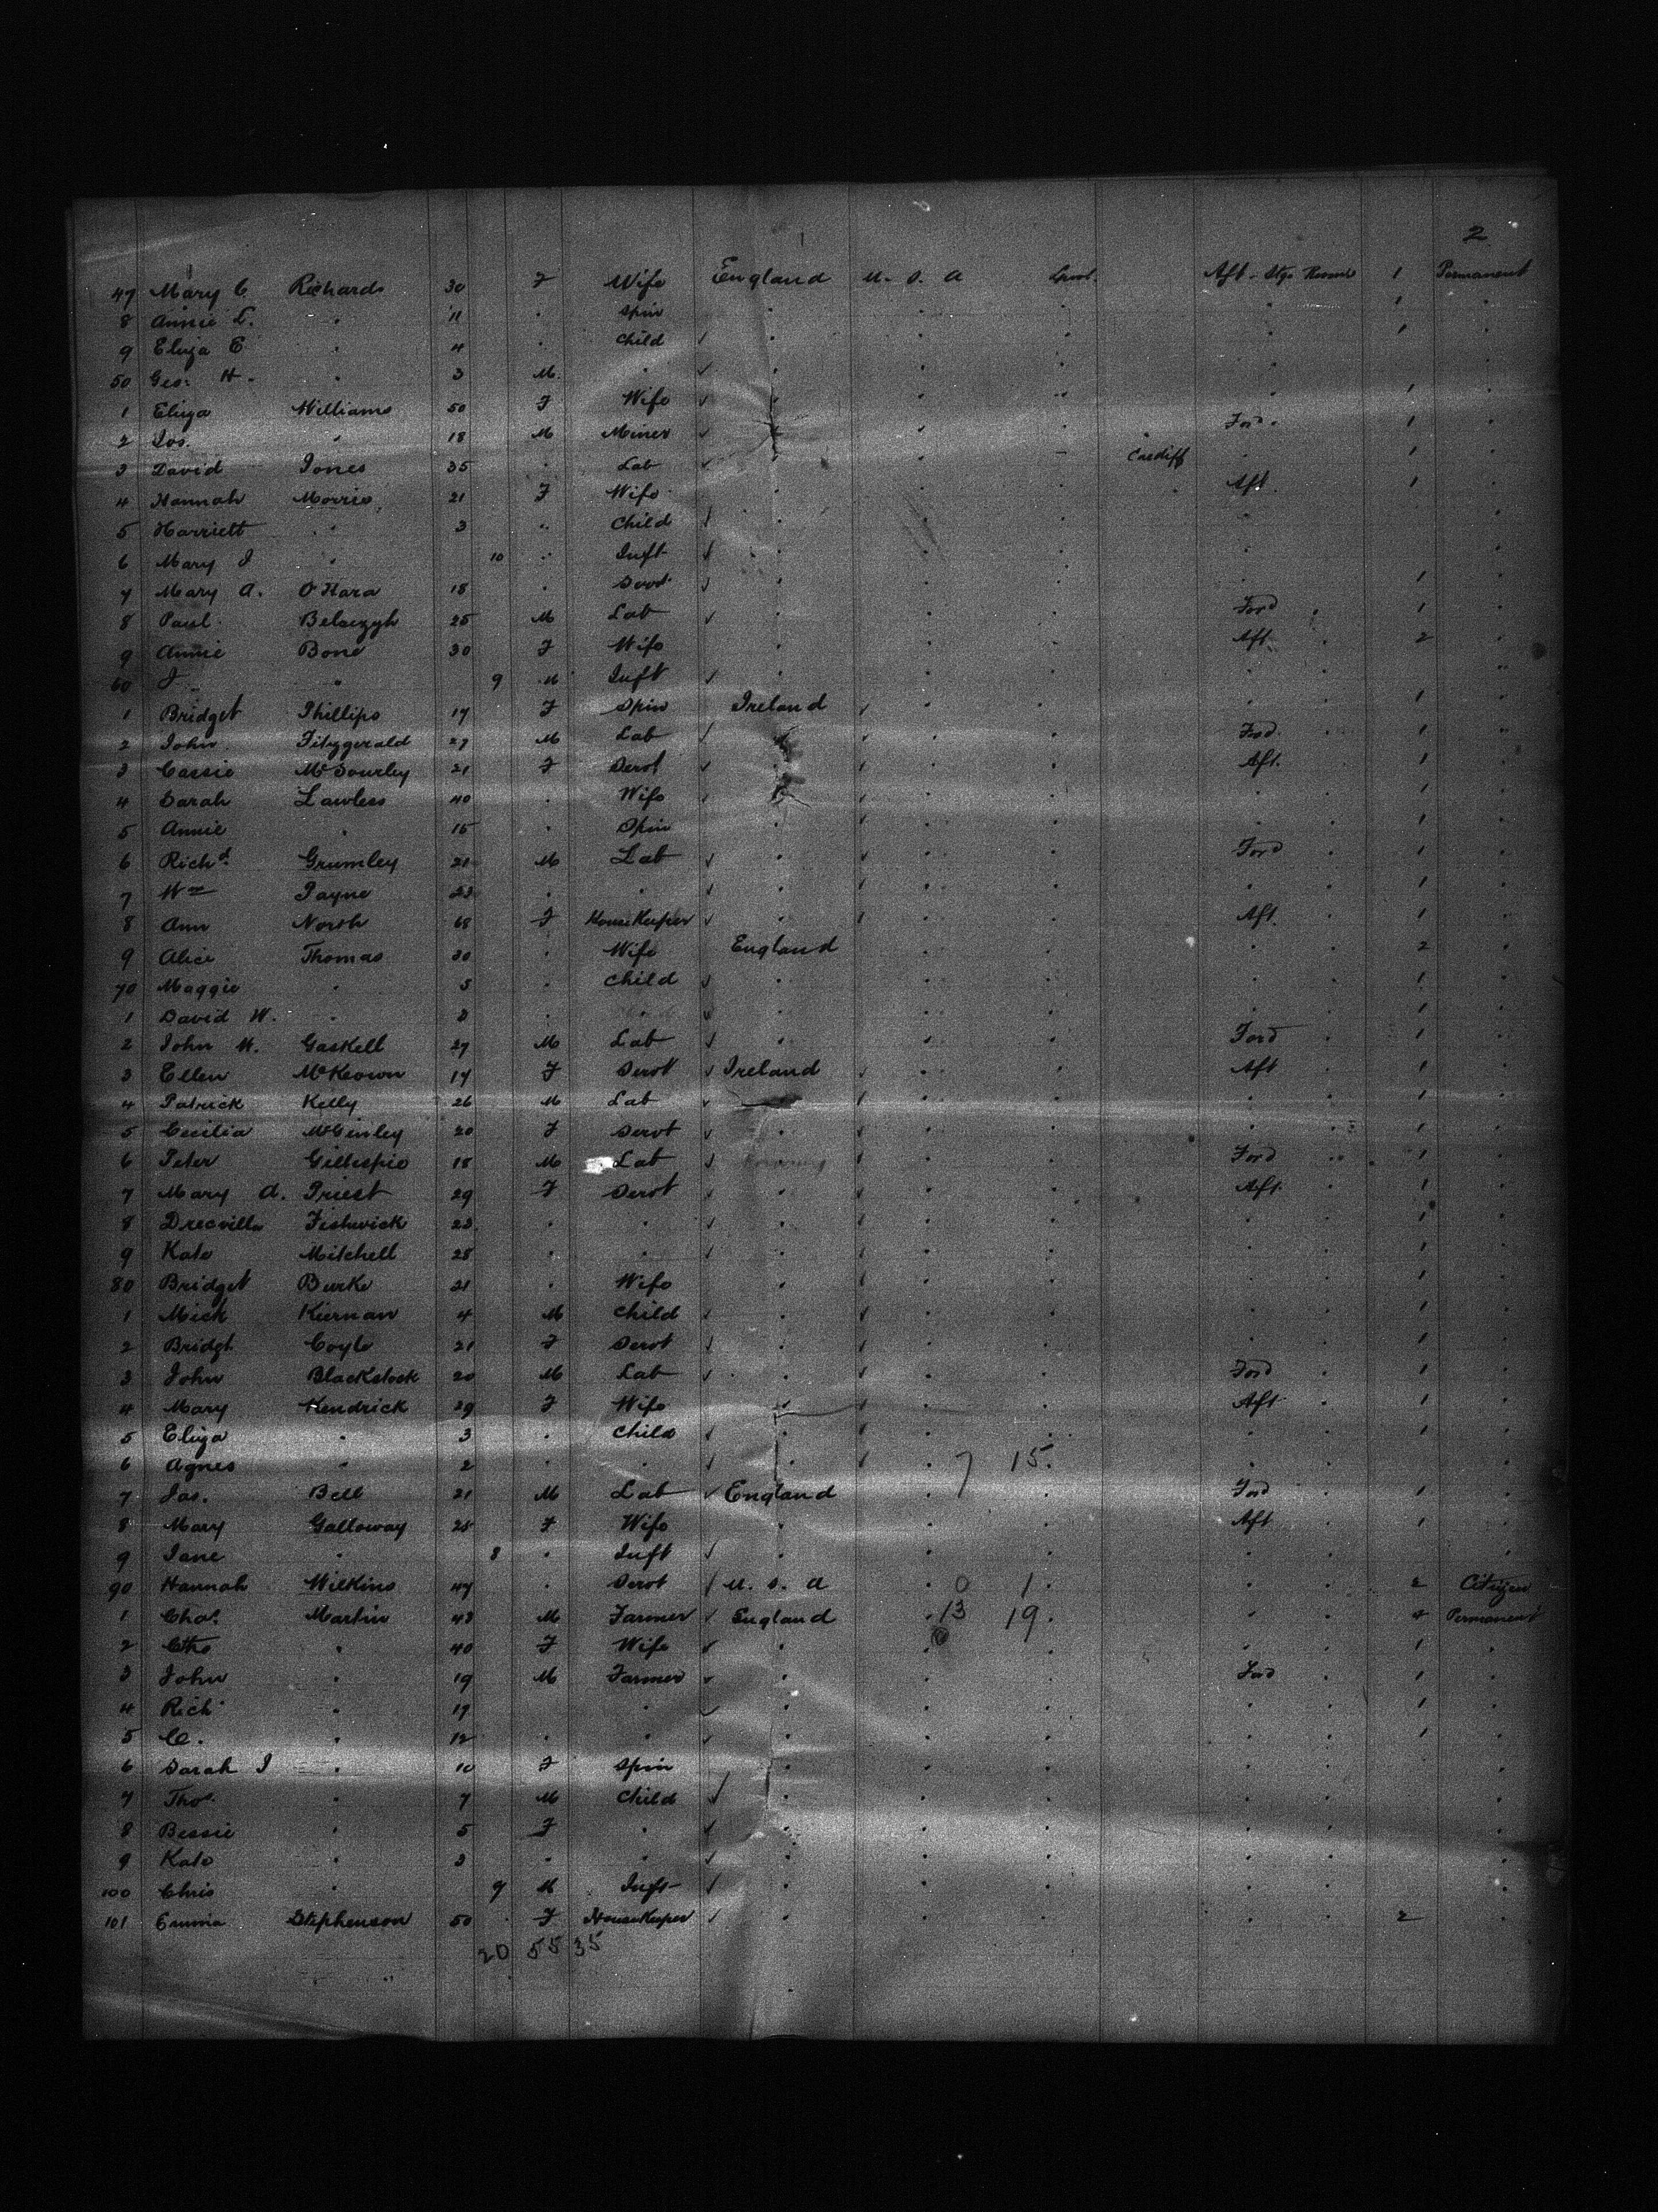 2
47 Mary C Richards 30 F Wife England U. S. A Lpool. Aft - Stge 1 Permanent
8 Annie L. " 11 " Spin " " " " 1 "
9 Eliza E " 4 " Child " " " " 1 "
50 Geo. H. " 3 M. " " " " " "
1 Eliza Williams 50 F Wife " " " " 1 "
2 Jos. " 18 M Miner " " " Ford. 1 "
3 David Jones 35 " Lab " " " Cardiff " 1 "
4 Hannah Morris 21 F Wife " " " " Aft. 1 "
5 Harriett " 3 " Child " " " " "
6 Mary J " 10 " Inft " " " " "
7 Mary A. O'Hara 18 " Servt " " " " 1 "
8 Paul 25 M Lab " " " Ford " 1 "
9 Annie Bone 30 F Wife " " " Aft. " 2 "
60 J " 9 M Inft " " " " " "
1 Bridget Phillips 17 F Spin Ireland " " " " 1 "
2 John Fitzgerald 27 M Lab " " " Ford. " 1 "
3 Cassie 21 F Servt " " " Aft. " 1 "
4 Sarah Lawless 40 " Wife " " " " " 1 "
5 Annie " 15 " Spin " " " " " 1 "
6 Richd. Grumley 21 M Lab " " " Ford " 1 "
7 Wm Payne 23 " " " " " " " 1 "
8 Ann North 68 F HouseKeeper " " " Aft. " 1 "
9 Alice Thomas 30 " Wife England " " " " 2 "
70 Maggie " 5 " Child " " " " " 1 "
1 David W. " 3 " " " " " " " 1 "
2 John W. Gaskell 27 M Lab " " " Ford " 1 "
3 Ellen McKeown 17 F Servt Ireland " " Aft " 1 "
4 Patrick Kelly 26 M Lab " " " " 1 "
5 Cecilia McGinley 20 F Servt " " " " " 1 "
6 Peter Gillespie 18 M Lab " " Ford " 1 "
7 Mary A. Priest 29 F Servt " " " Aft. " 1 "
8 Fishwick 23 " " " " " " " 1 "
9 Kate Mitchell 28 " " " " " " " 1 "
80 Bridget Burke 21 " Wife " " " " " 1 "
1 Mick Kiernan 4 M Child " " " " " 1 "
2 Bridgt Coyle 21 F Servt " " " " " 1 "
3 John Blackstock 20 M Lab " " " Ford " 1 "
4 Mary Kendrick 29 F Wife " " " Aft " 1 "
5 Eliza " 3 " Child " " " " " 1 "
6 Agnes " 2 " " " " 7 15. " " "
7 Jas. Bell 21 M Lab England " " Ford " 1 "
8 Mary Galloway 25 F Wife " " " Aft " 1 "
9 Jane " 8 " Inft " " " " " "
90 Hannah Wilkins 47 " Servt U. S. A " 0 1. " " 2 Citizen
1 Chas. Martin 43 M Farmer England " 13 19. " " Permanent
2 " 40 F Wife " " 0 " " " 1 "
3 John " 19 M Farmer " " " Ford " 1 "
4 Rich " 17 " " " " " " 1 "
5 C. " 12 " " " " " " " 1 "
6 Sarah J " 10 F Spin " " " " " "
7 Thos. " 7 M Child " " " " " "
8 Bessie " 5 F " " " " " " "
9 Kate " 3 " " " " " " " "
100 Chris " 9 M Inft " " " " " "
101 Emma Stephenson 50 " F HouseKeeper " " " " " 2 "
20 55 35